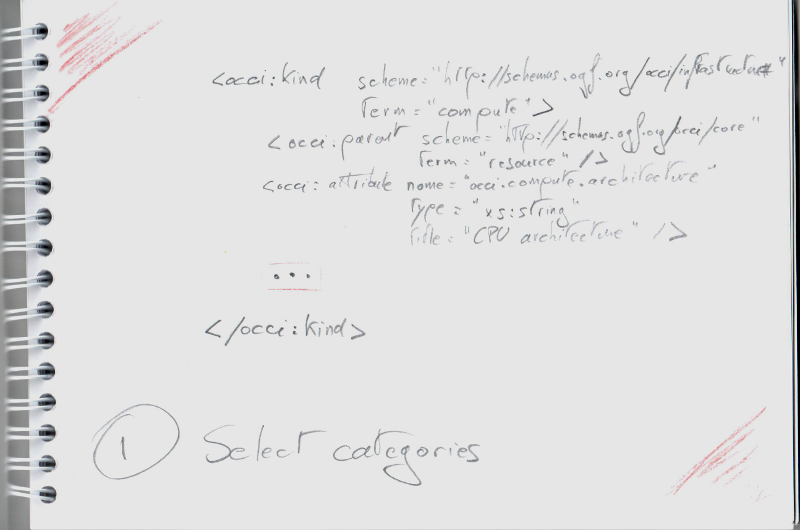 <occi:kind scheme="http://schemas.ogf.org/occi/infrastructure#"
term="compute">
<occi:parent scheme="http://schemas.ogf.org/occi/core"
term="resource" />
<occi:attribute name="occi.compute.architecture"
type="xs:string"
title="CPU architecture" />
...
</occi:kind>
1 Select categories